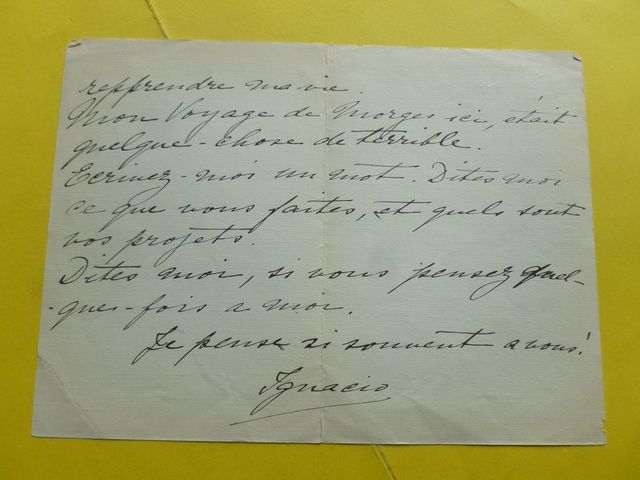 repprendre ma vie.
Mon Voyage de Morges ici, était
quelque-chose de terrible.
Ecrivez-moi un mot. Dites moi
ce que vous faites, et quels sont
vos projets.
Dites moi, si vous pensez quel-
-ques-fois a moi.
Je pense si souvent a vous!
Ignacio